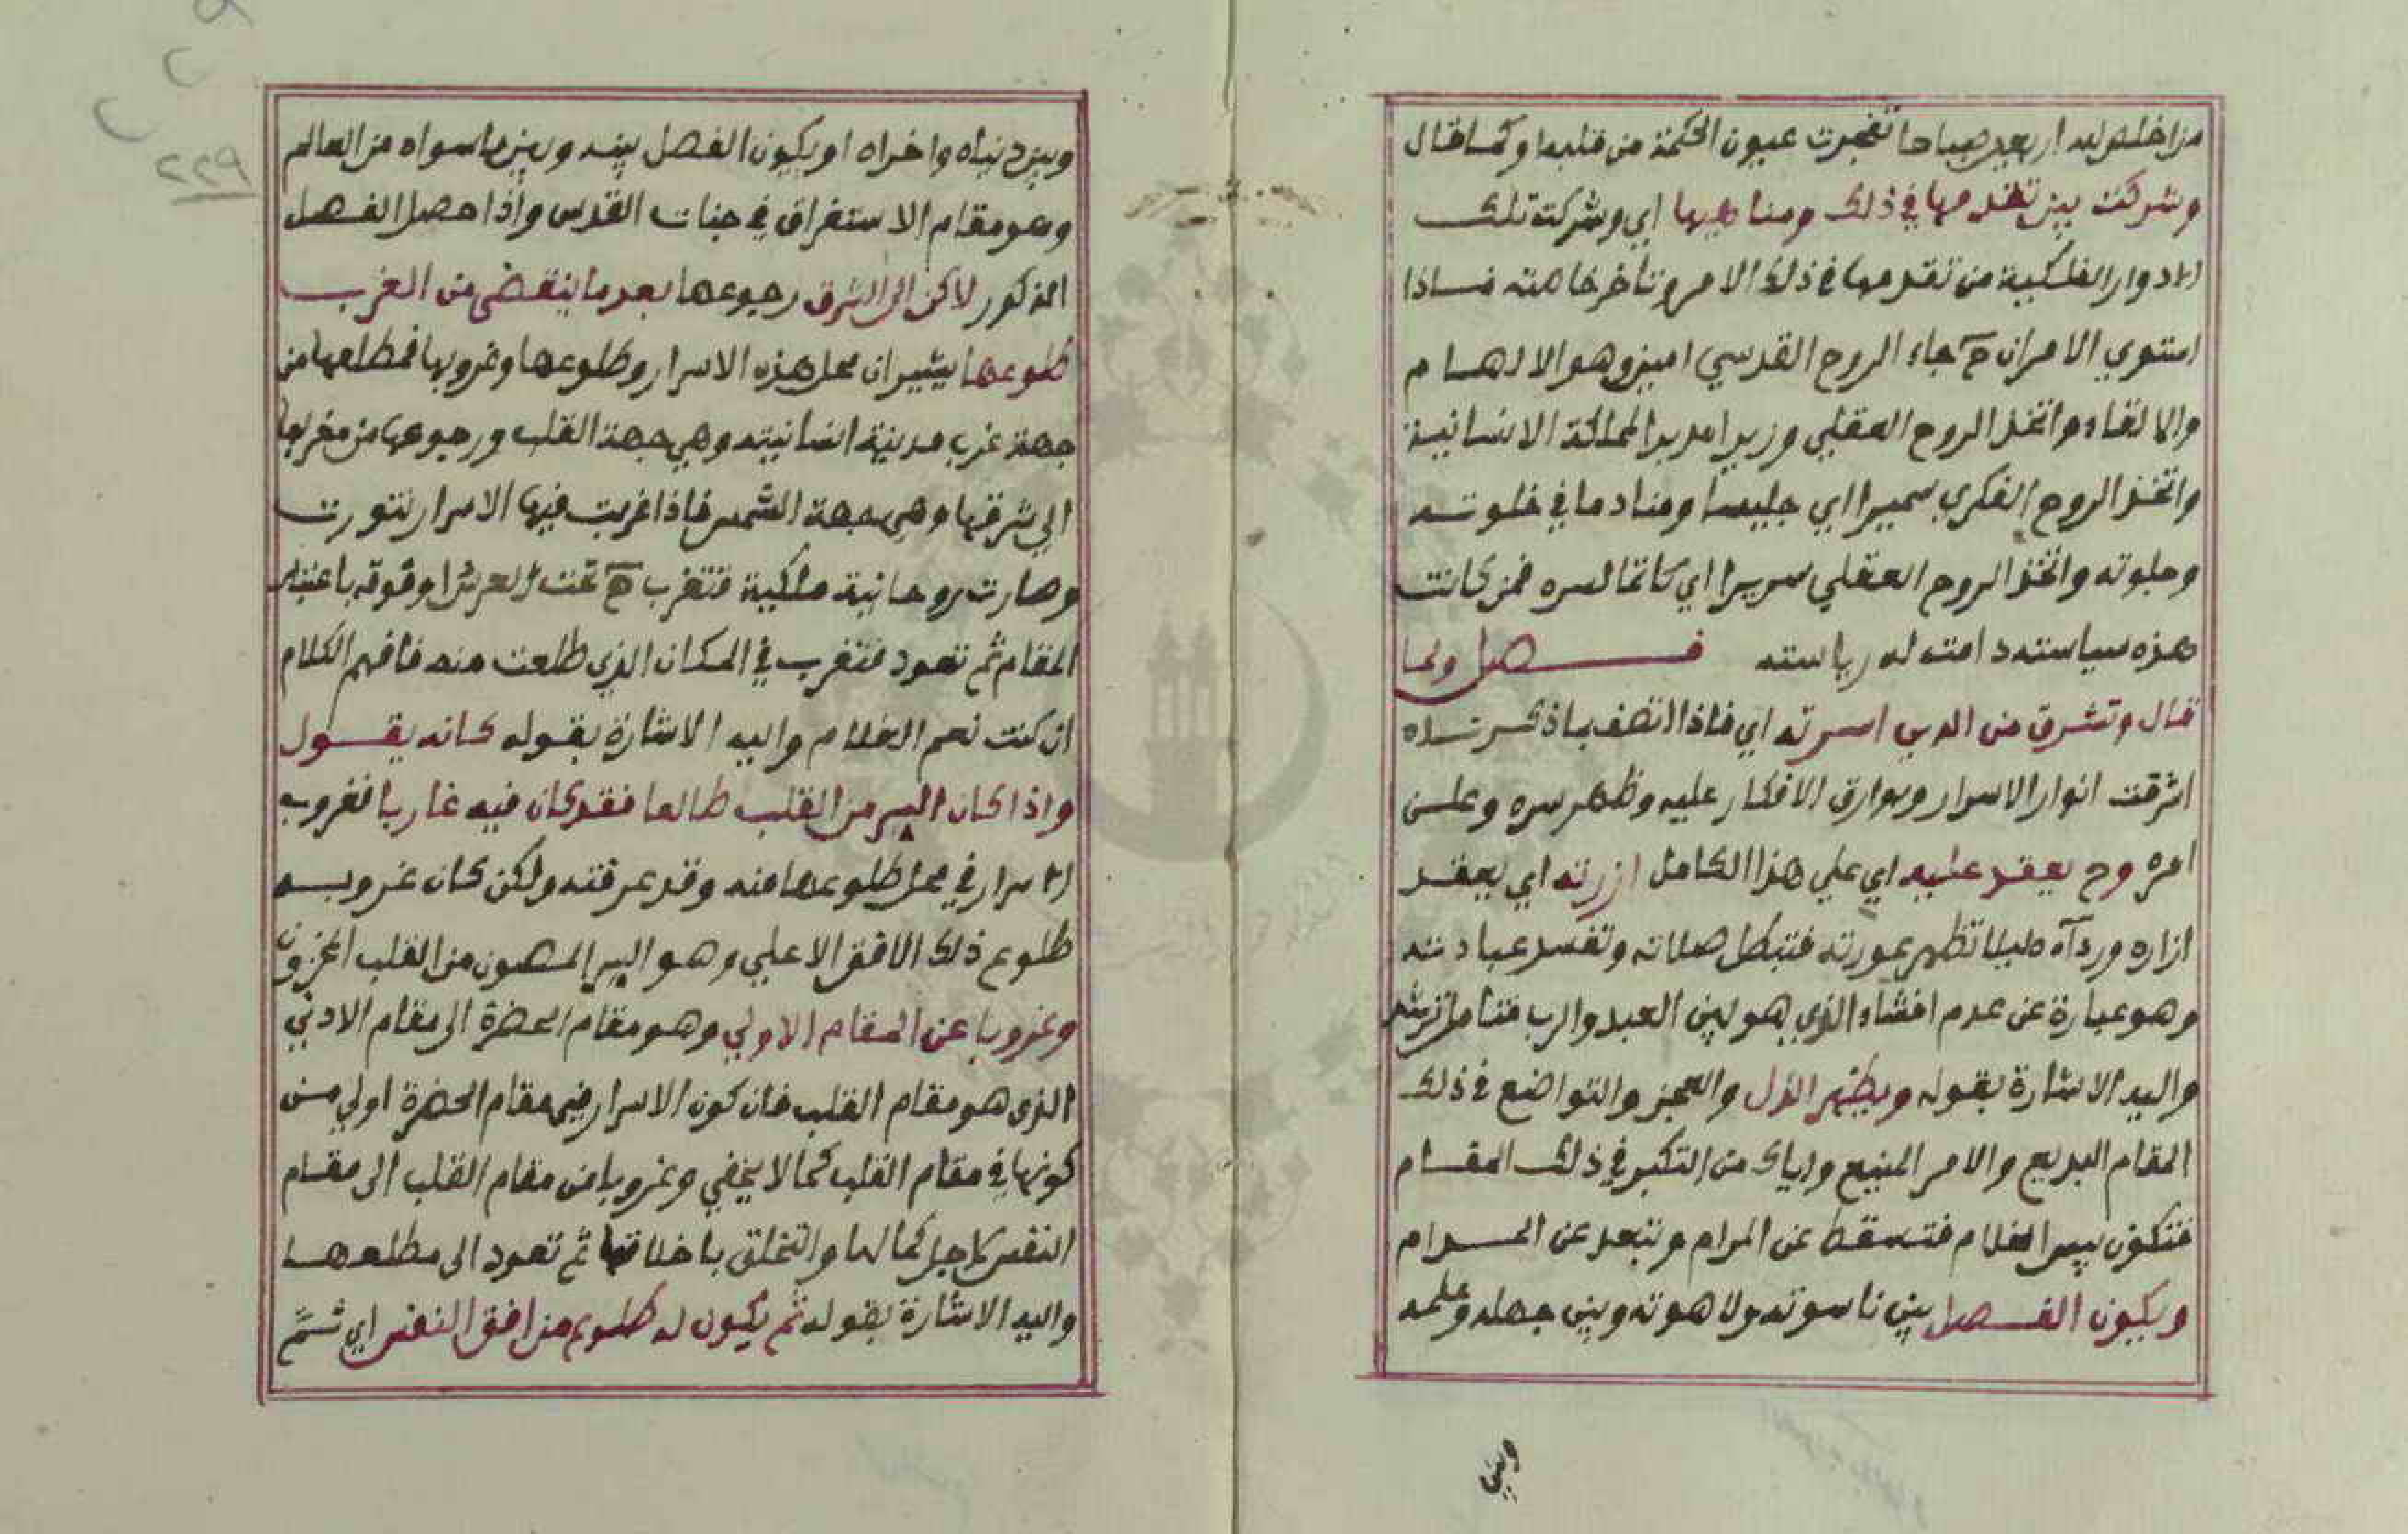 من اخلص لله اربعين صباحا تفجرت عيون الحكمة من قلبه او كما قال
وشركت بين تقدمها في ذلك ومناهيها اي وشركت تلك
الادوار الفلكية من تقدمها في ذلك الامر وتاخر خاهته فاذا
استوي الامران ح جاء الروح القدسي امين وهو الالهام
والالقاء واتخذ الروح العقلي وزيرا مدبرا لمملكة الانسانية
واتخذ الروح الفكري سميرا اي جليسا ومنادما في خلوته
وجلوته واتخذ الروح العقلي سريرا اي كاتما لسره فمن كانت
هذه سياسته دامت له رياسته فصل ولما
قال وتشرق من الدس اسرته اي فاذا اتصف بما ذكرناه
اشرقت انوار الاسرار وبوارق الافكار عليه وظهر سره وعلن
امره وح يعقد عليه اي علي هذا الكامل ازرته اي يعقد
ازاره وردآه ليلا تظهر عورته فتبطل صلاته وتفسد عبادته
وهو عبارة عن عدم افشاء الذي هو بين العبد والرب فتامل ترشد
واليه الاشارة بقوله ويظهر الذل والعجز والتواضع في ذلك
المقام البديع والامر المنيع واياك من التكبر في ذلك المقام
فتكون بيس الغلام فتسقط عن المرام وتبعد عن المرام
ويكون الفصل بين ناسوته ولاهوته وبين جهله وعلمه
وبين
٢٢٩
وبين دنياه واخراه او يكون الفصل بينه وبين ماسواه من العالم
وهو مقام الاستغراق في جنات القدس واذا حصل الفصل
المذكور لاكن الى الشرق رجوعها بعد ما ينقضي من الغرب
طلوعها يشير ان محل هذه الاسرار وطلوعها وغروبها فمطلعها من
جهة غرب مدينة انسانيته وهي جهة القلب ورجوعها من مغربها
الي شرقها وهي جهة الشمس فاذا غربت فيها الاسرار تنورت
وصارت روحانية ملكية فتغرب ح تحت العرش او فوقه باعتبار
المقام ثم تعود فتغرب في المكان الذي طلعت منه فافهم الكلام
ان كنت نعم الغلام واليه الاشارة بقوله كانه يقول
واذا كان السر من القلب طالعا فقد كان فيه غاربا فغروب
الاسرار في محل طلوعها منه وقد عرفته ولكن كان غروبه
طلوع ذلك الافق الاعلي وهو السر المصون من القلب المخزون
وغروبا عن المقام الاولي وهو مقام الحضرة الى مقام الادني
الذي هو مقام القلب فان كون الاسرار في مقام الحضرة اولي من
كونها في مقام القلب كما لا يخفي وغروبا من مقام القلب الى مقام
النفس لاجل كمالها والتخلق باخلاقها ثم تعود الى مطلعها
واليه الاشارة بقوله ثم يكون له طلوع من افق النفس اي ثم